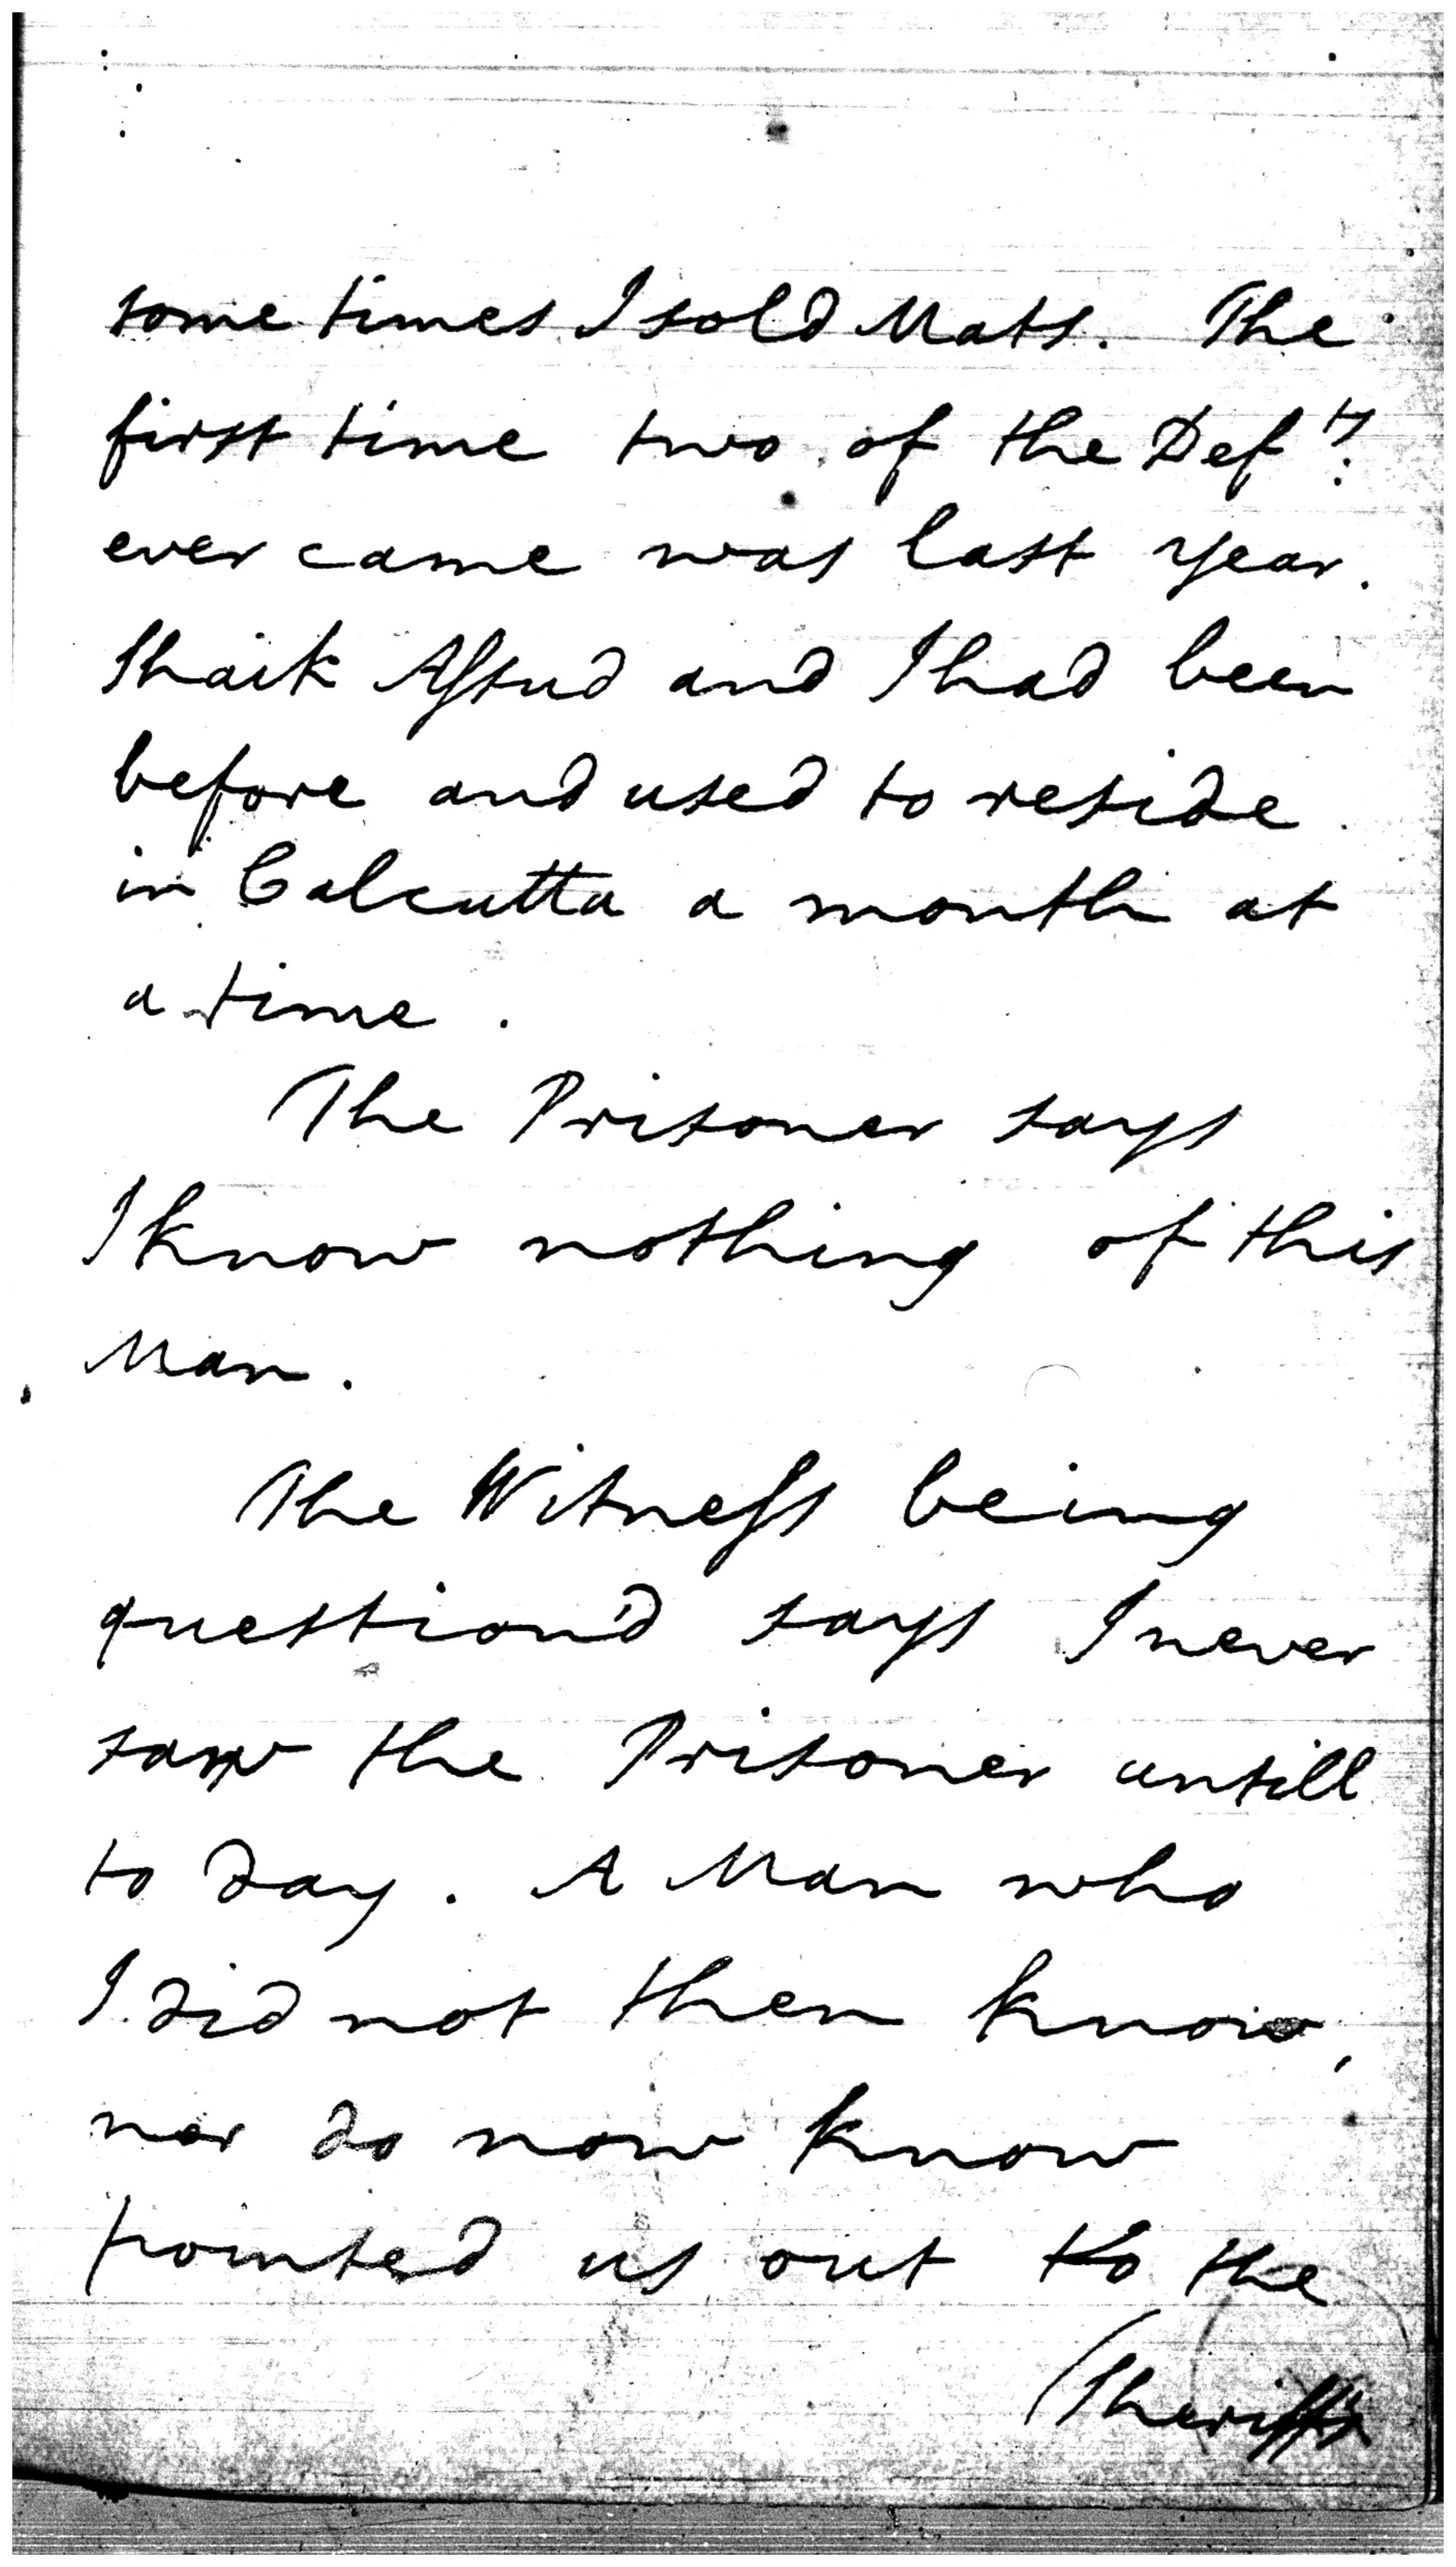 some times I sold Mats. The
first time two of the Def.ts
ever came was last year.
Shaik Assud and I had been
before and used to reside
in Calcutta a month at
a time.
The Prisoner says
I know nothing of this
Man.
The Witness being
question'd says I never
saw the Prisoner untill
to day. A Man who
I did not then know,
nor do now know
pointed us out to the
Sheriff's